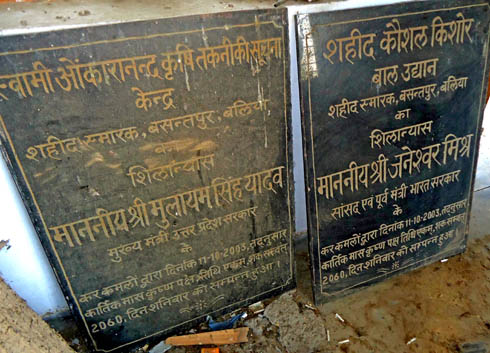 स्वामी ओंकारानन्द कृषि तकनीकी सूचना
केन्द्र
शहीद स्मारक, बसन्तपुर, बलिया
का
शिलान्यास
माननीय श्री मुलायम सिंह यादव
मुख्य मंत्री उत्तर प्रदेश सरकार
के
कर कमलों द्वारा दिनांक 11-10-2003, तद्नुसार
कार्तिक मास कृष्ण पक्ष तिथि एकम्, शक-सम्वत्
2060, दिन शनिवार को सम्पन्न हुआ।
शहीद कौशल किशोर
बाल उद्यान
शहीद स्मारक, बसन्तपुर, बलिया
का
शिलान्यास
माननीय श्री जनेश्वर मिश्र
सांसद एवं पूर्व मंत्री भारत सरकार
के
कर कमलों द्वारा दिनांक 11-10-2003, तद्नुसार
कार्तिक मास कृष्ण पक्ष तिथि एकम्, शक-सम्वत्
2060, दिन शनिवार को सम्पन्न हुआ।